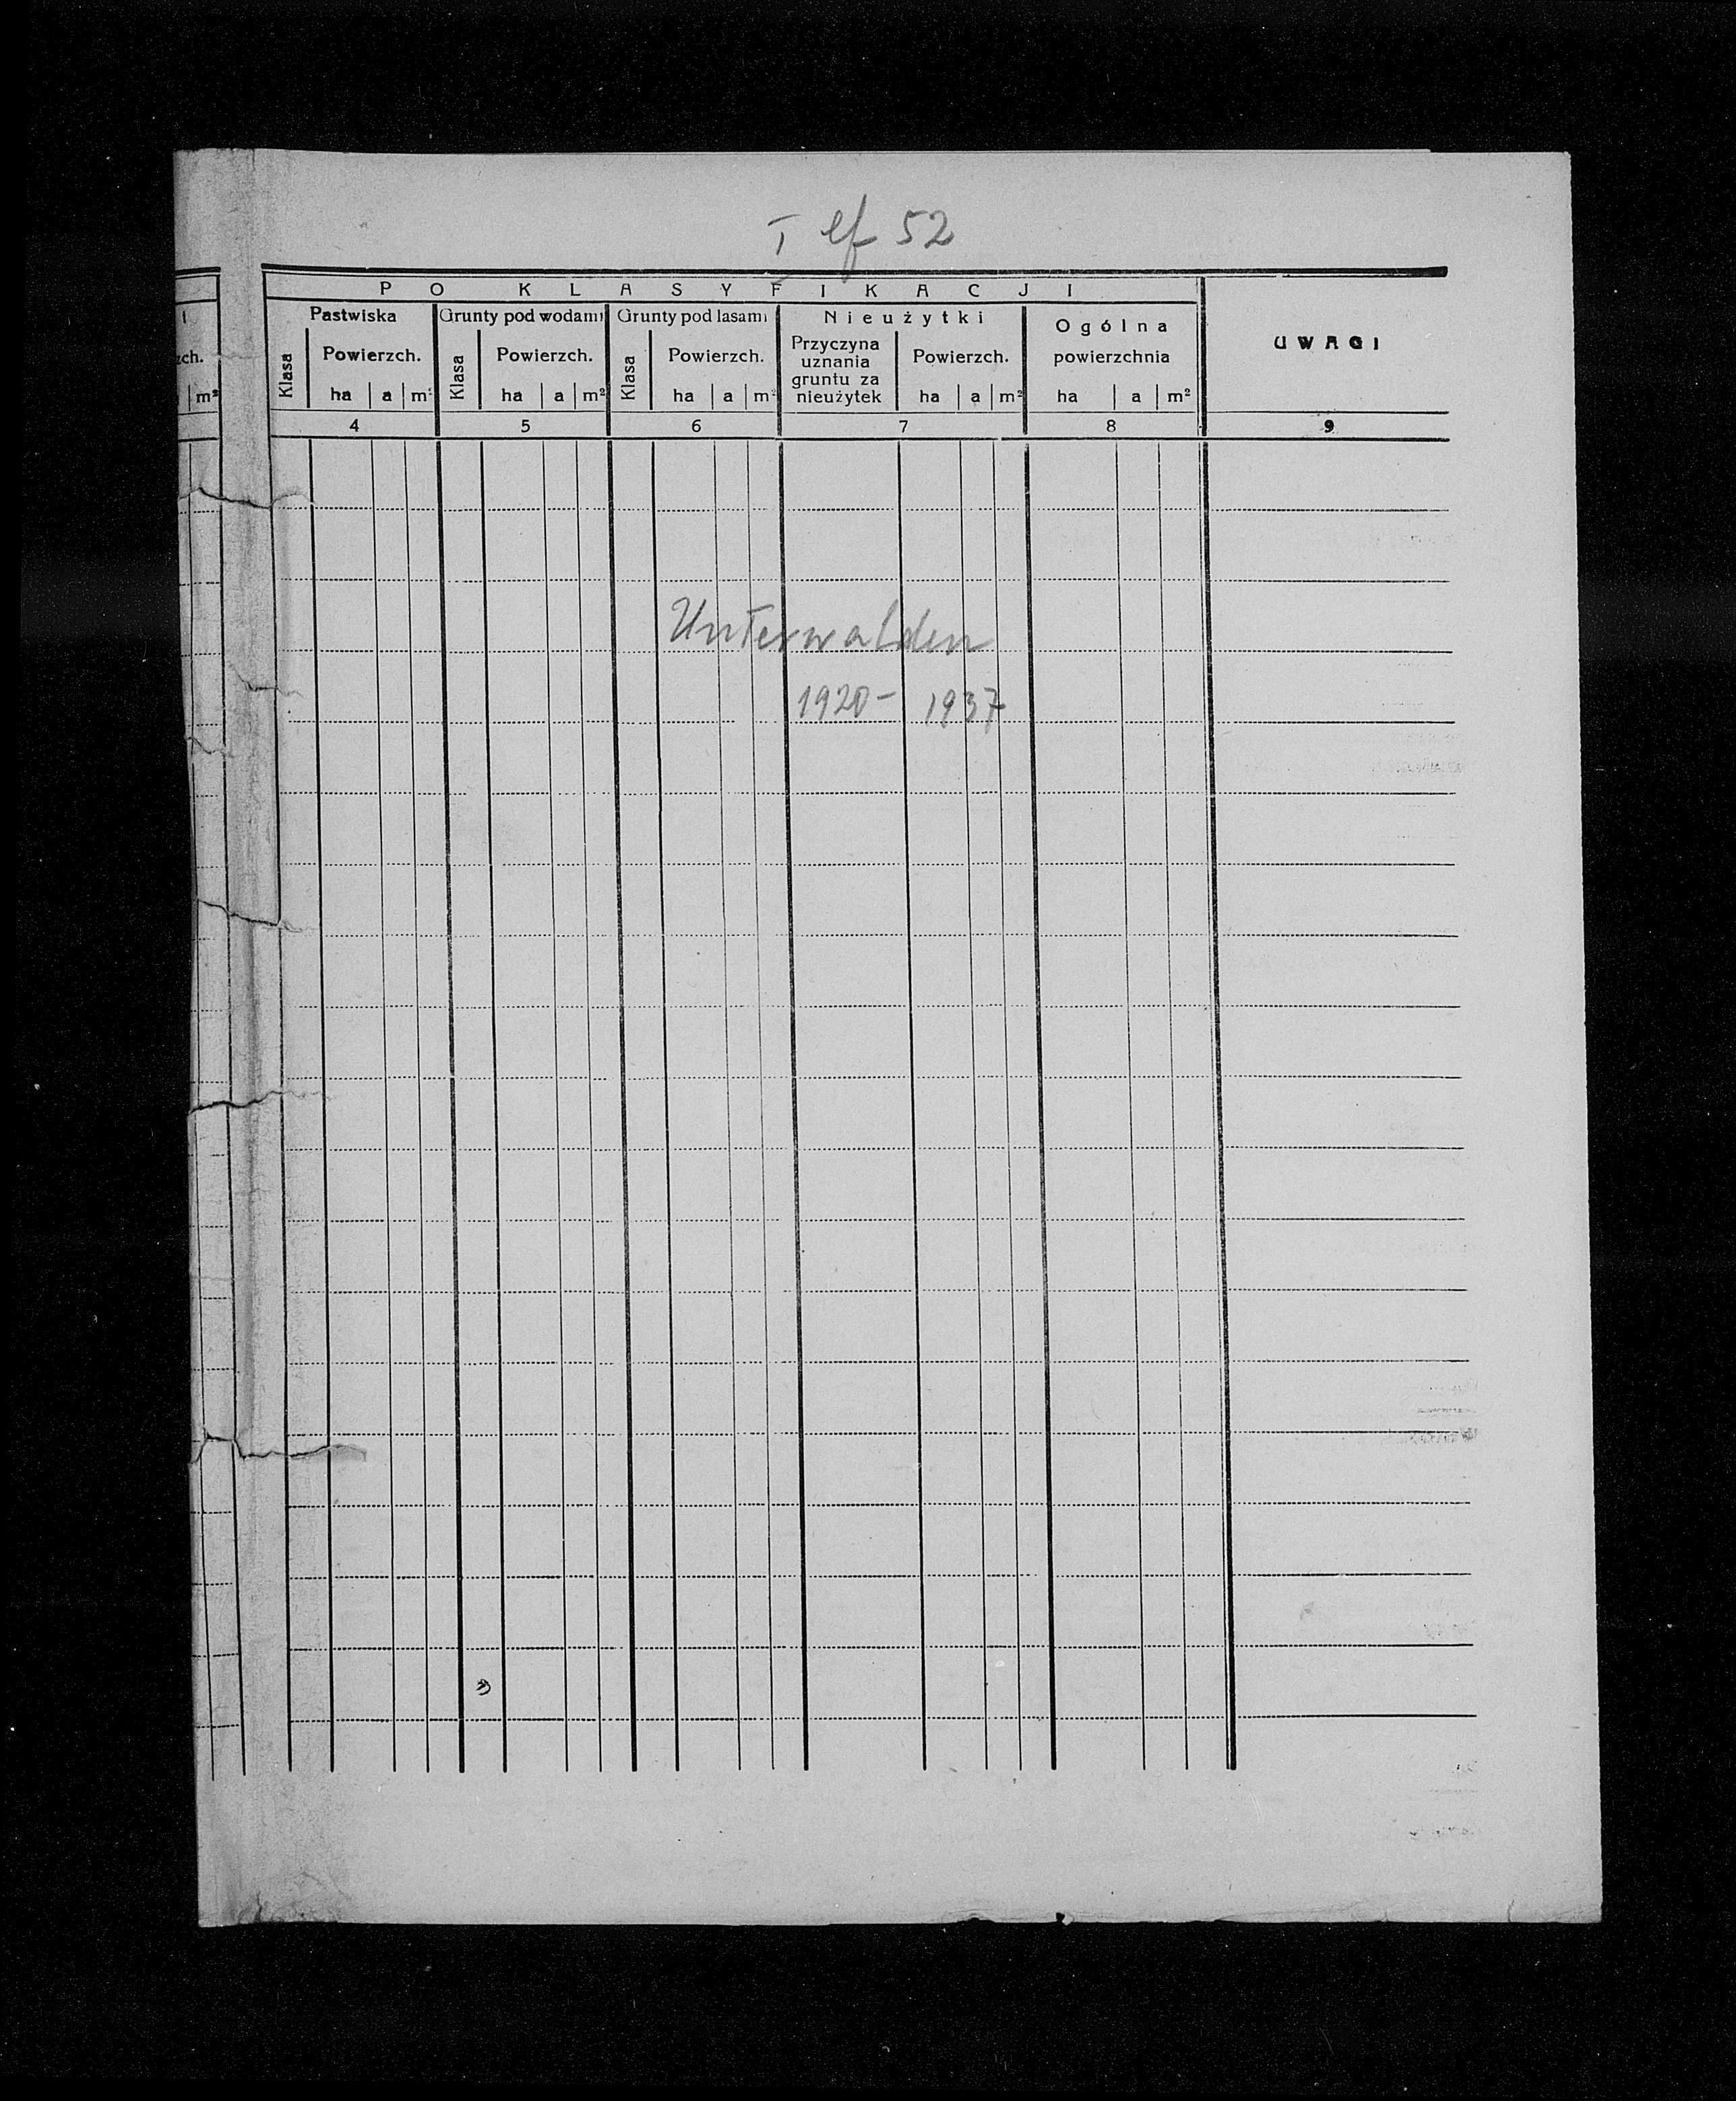 I ef 52
PO KLASYFIKACJI
I
zch.
m²
Pastwiska
Klasa
Powierzch.
ha a m²
4
Grunty pod wodami
Klasa
Powierzch.
ha a m²
5
Grunty pod lasami
Klasa
Powierzch.
ha a m²
6
Nieużytki
Przyczyna
uznania
gruntu za
nieużytek
Powierzch.
ha a m²
7
Ogólna
powierzchnia
ha a m²
8
UWAGI
9
Unterwalden
1920 - 1937